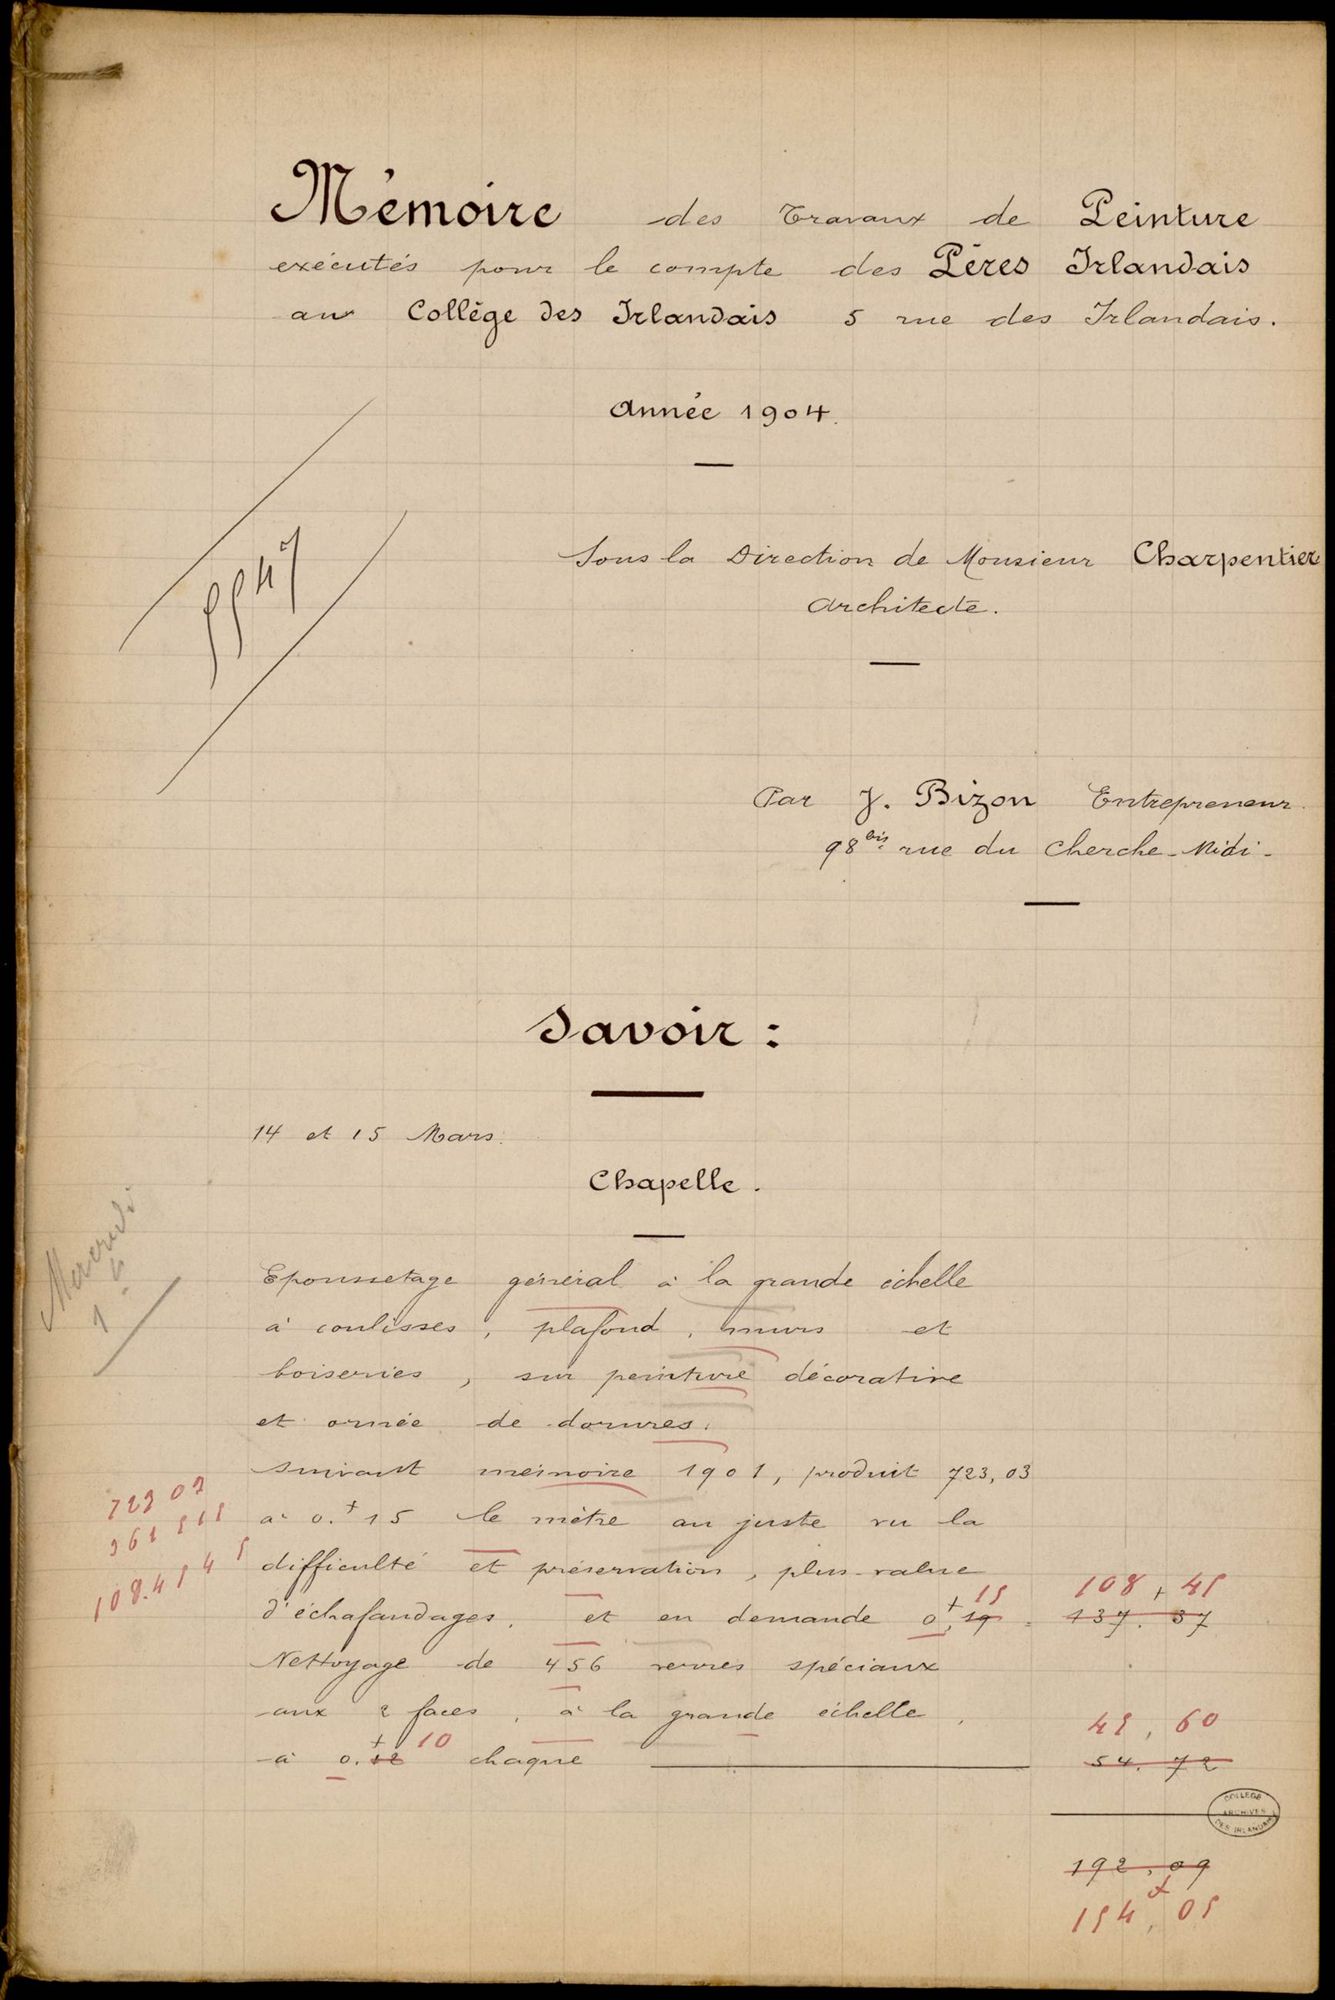 Mémoire des Travaux de Peinture
exécutés pour le compte des Pères Irlandais
au Collège des Irlandais 5 rue des Irlandais.
Année 1904.
Sous la Direction de Monsieur Charpentier
Architecte.
Par J. Bizon Entrepreneur.
98 bis rue du Cherche-Midi-
Savoir :
14 et 15 Mars.
Chapelle.
Epoussetage général à la grande échelle
à coulisses, plafond, murs et
boiseries, sur peinture décorative
et ornée de dorures.
suivant mémoire 1901, produit 723,03
723 03
à 0.f 15 le mètre au juste vu la
361 515
difficulté et préservation, plus-value
108.454 5
15 108f,45
d'échafaudages. et en demande 0f,19 = 137.37
Nettoyage de 456 verres spéciaux
aux 2 faces, à la grande échelle,
10 45,60
à 0.f 12 chaque 54.72
COLLEGE
ARCHIVES
DES IRLANDAIS
192,09
154f,05